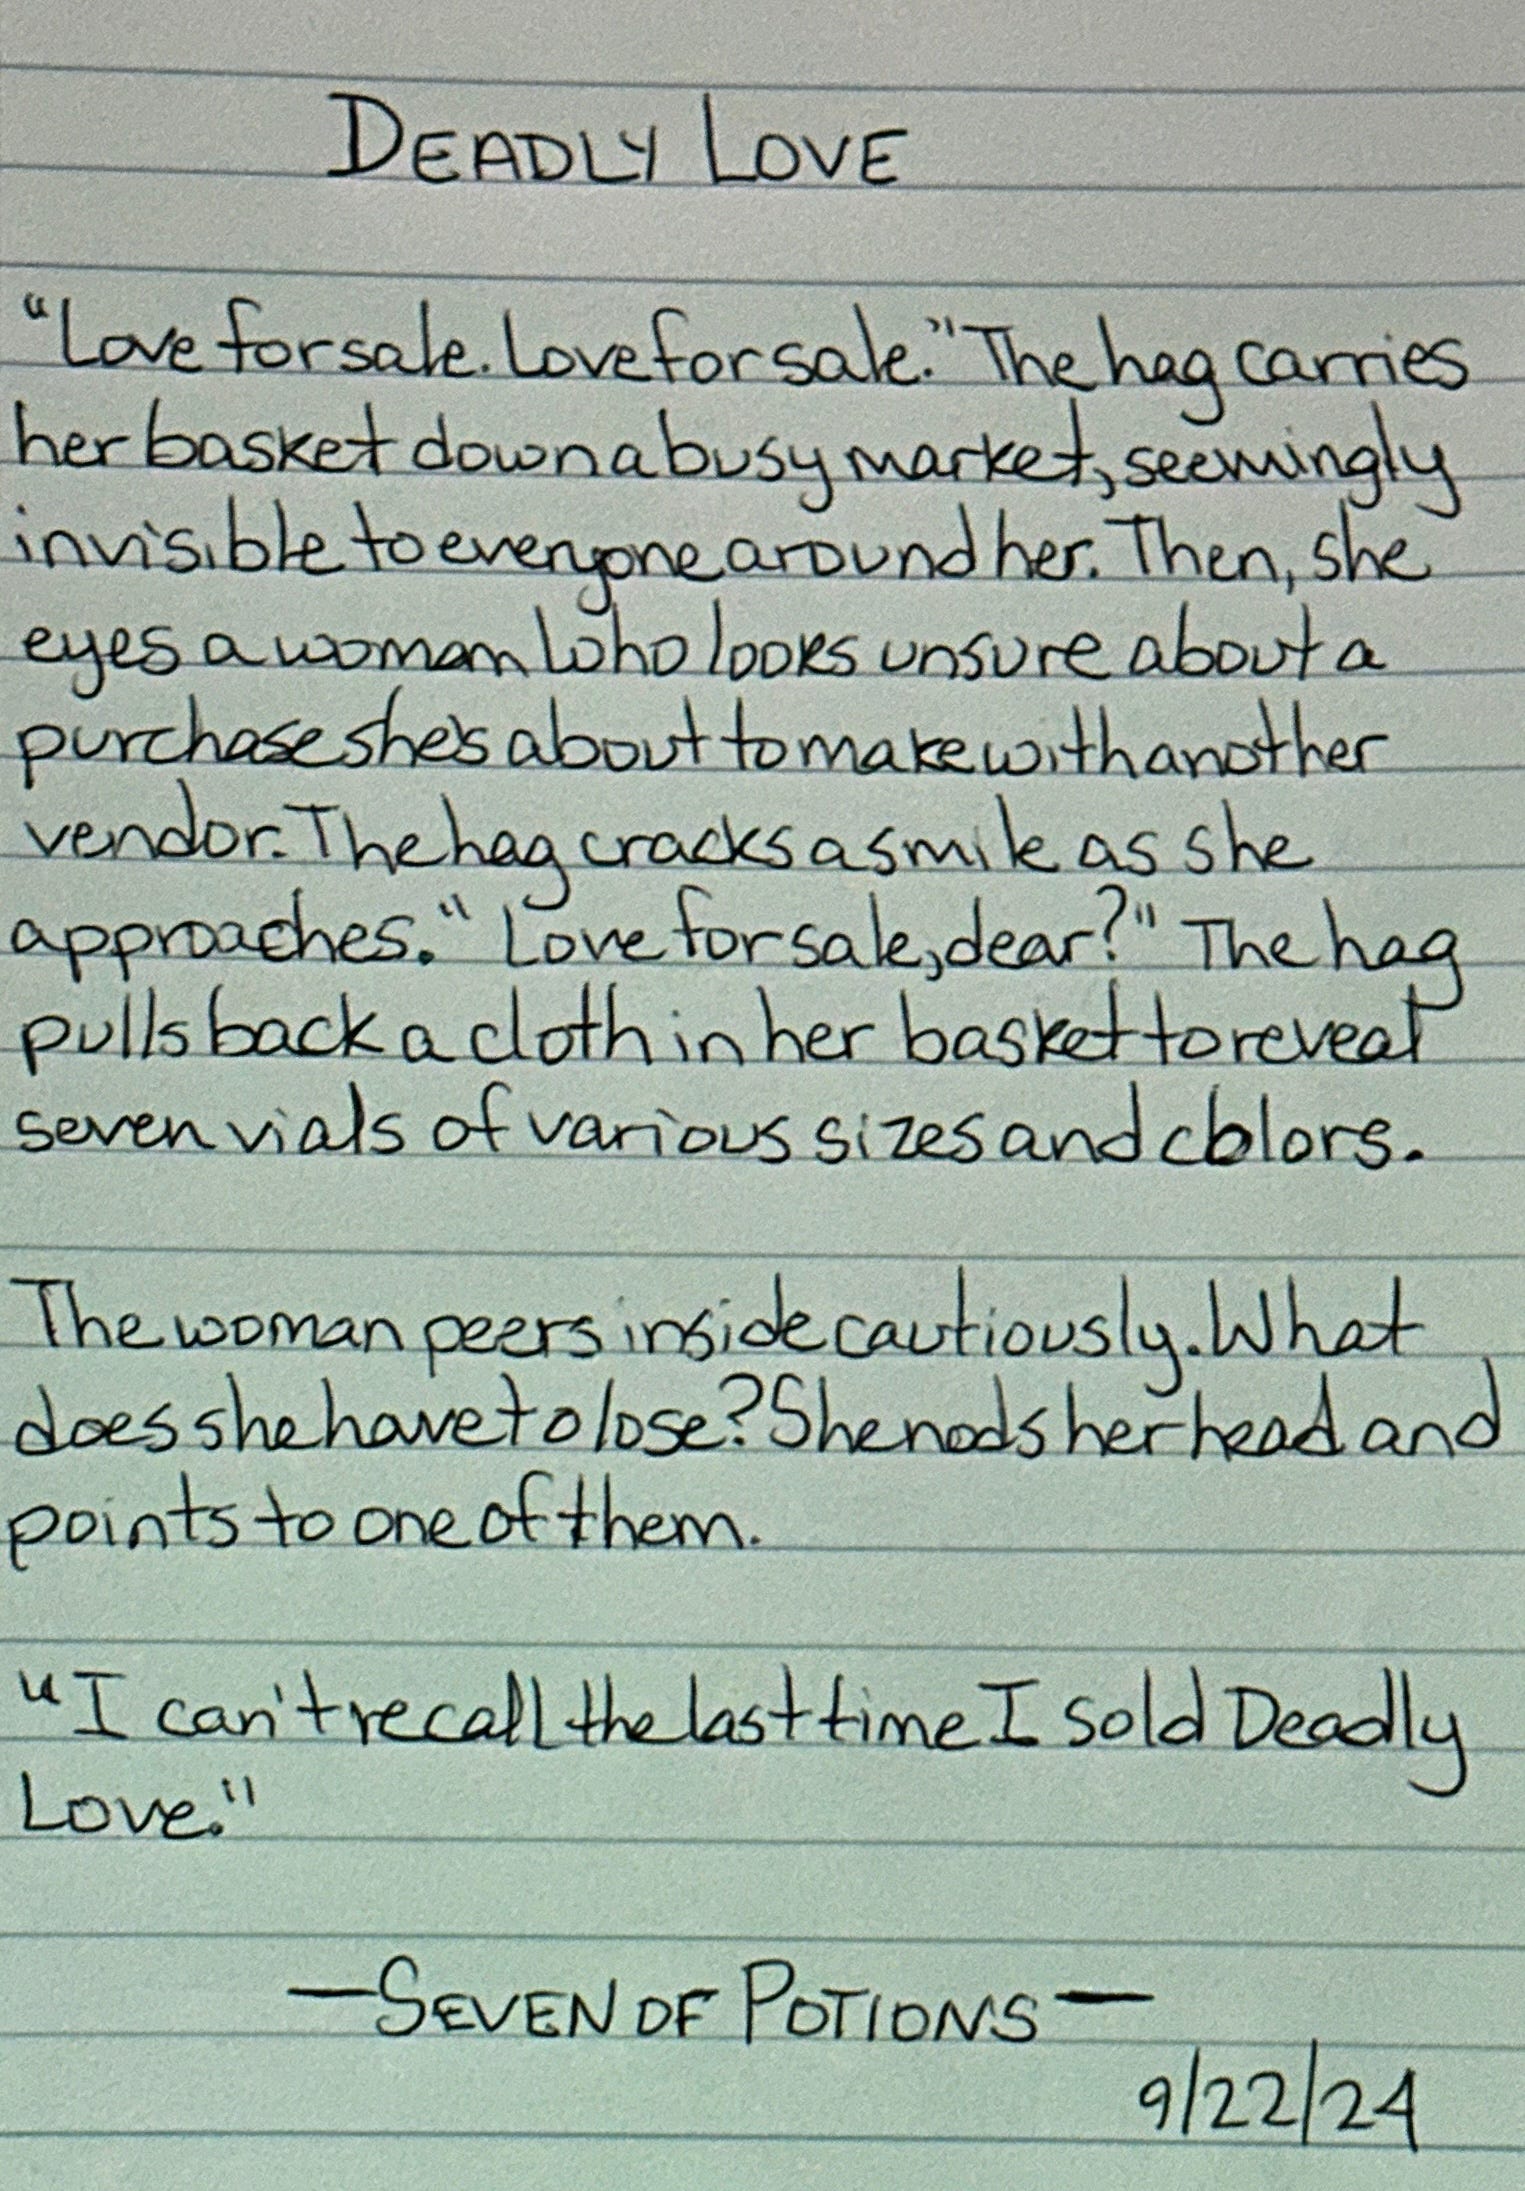 DEADLY LOVE
"Love for sale. Love for sale." The hag carries
her basket down a busy market, seemingly
invisible to everyone around her. Then, she
eyes a woman who looks unsure about a
purchase she's about to make with another
vendor. The hag cracks a smile as she
approaches. "Love for sale, dear?" The hag
pulls back a cloth in her basket to reveal
seven vials of various sizes and colors.
The woman peers inside cautiously. What
does she have to lose? She nods her head and
points to one of them.
"I can't recall the last time I sold Deadly
Love."
—SEVEN OF POTIONS—
9/22/24